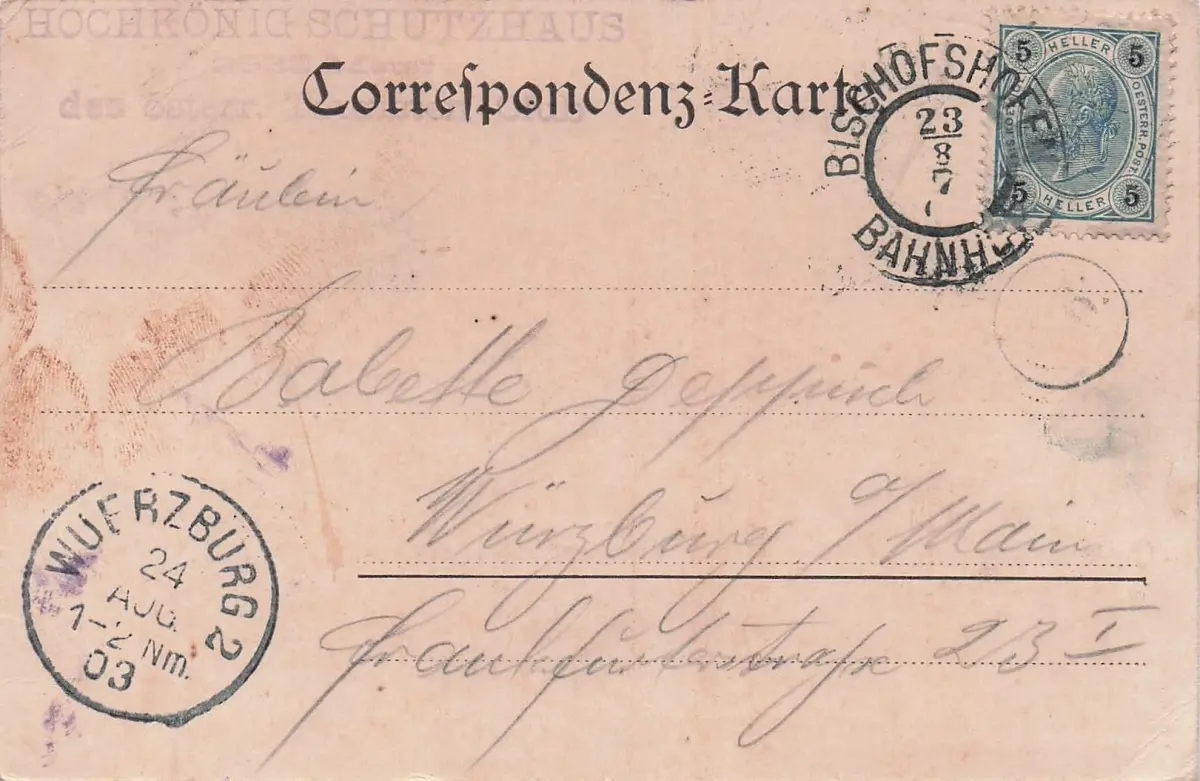 HOCHKÖNIG SCHUTZHAUS
des österr.
Correspondenz-Karte
BISCHOFSHOFEN
23
8
7
BAHNHOF
5 HELLER 5
OESTERR. POST.
5 HELLER 5
Fräulein
Babette Deppisch
Würzburg a/Main
Frankfurterstraße 23 I
WUERZBURG 2
24
AUG.
1-2 Nm.
03